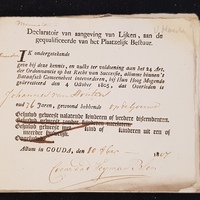 Declaratoir van aangeving van Lijken, aan de
gequalificeerde van het Plaatzelijk Bestuur.
Ik ondergetekende
geve bij deze kennis, en zulks ter voldoening aan het 24 Art.
der Ordonnantie op het Recht van Successie, alomme binnen't
Bataafsch Gemeenebest intevoeren, en bij Hun Hoog Mog.
gearresteerd den 4 October 1805, dat Overleden is
Johannes van
oud 76 Jaren, gewoond hebbende
Gehuwd geweest nalatende kinderen of verdere descendenten.
Gehuwd geweest zonder kinderen natelaten
Gehuwd geweest kind of kinderen uit een of
meerder Huwelijk.
Actum in GOUDA, den 10 8ber 1807